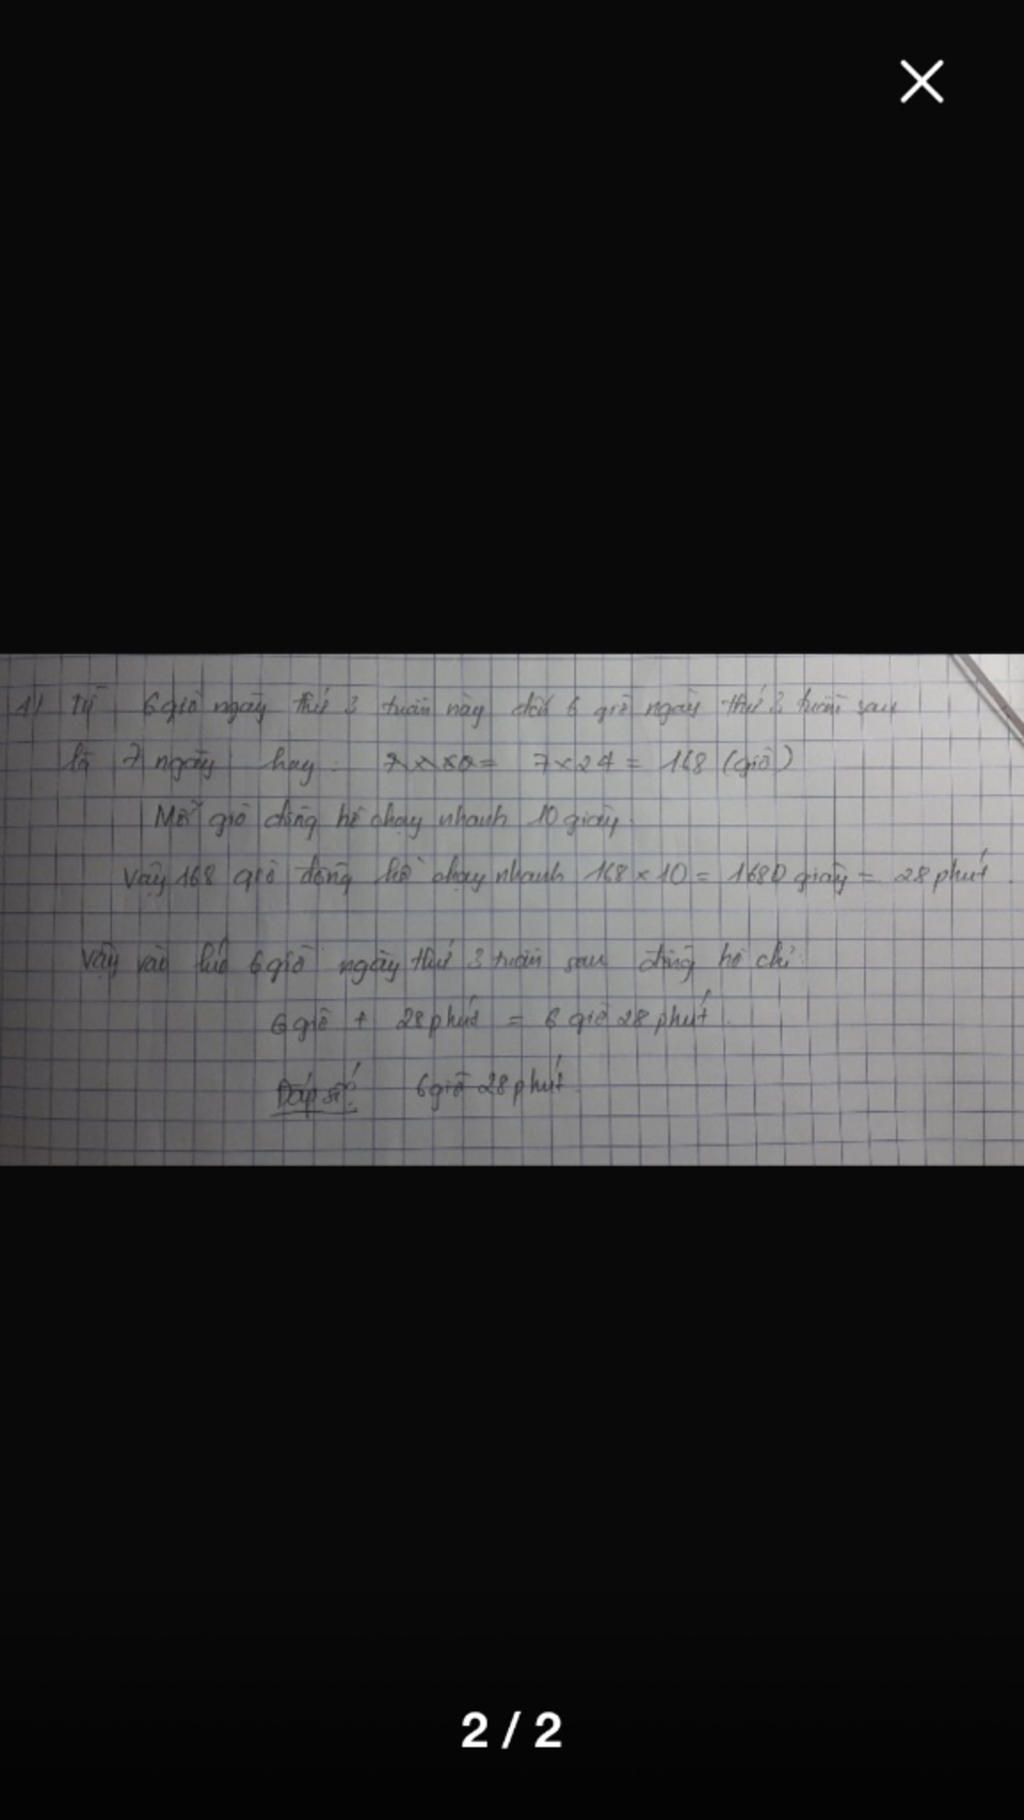 1) Từ 6 giờ ngày thứ 3 tuần này đến 6 giờ ngày thứ 3 tuần sau
là 7 ngày hay: 7 x 24 = 168 (giờ)
Mỗi giờ đồng hồ chạy nhanh 10 giây.
Vậy 168 giờ đồng hồ chạy nhanh 168 x 10 = 1680 giây = 28 phút.
Vậy vào lúc 6 giờ ngày thứ 3 tuần sau đồng hồ chỉ:
6 giờ + 28 phút = 6 giờ 28 phút.
Đáp số: 6 giờ 28 phút.
2 / 2